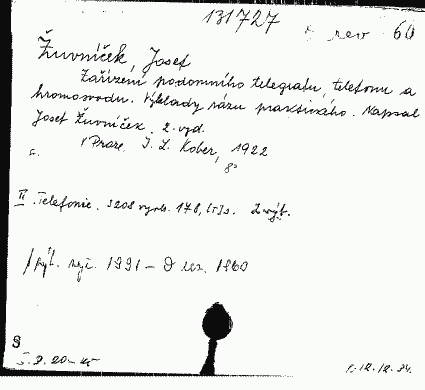 131727 rev 60
Žuvníček, Josef
Zařízení podomního telegrafu, telefonu a
hromosvodu. Výklady rázu praktického. Napsal
Josef Žuvníček. 2. vyd.
V Praze I. L. Kober, 1922
8°
II. Telefonie. s 208 vyob. 178, 2 výt.
1991 – 1960
§